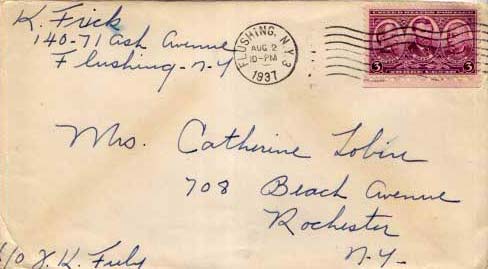 K. Frick
140-71 Ash Avenue
Flushing - N-Y
FLUSHING, N.Y. 3
AUG 2
10-PM
1937
3 3
Mrs. Catherine Lobire
708 Beach Avenue
Rochester
N-Y-
c/o J. K.